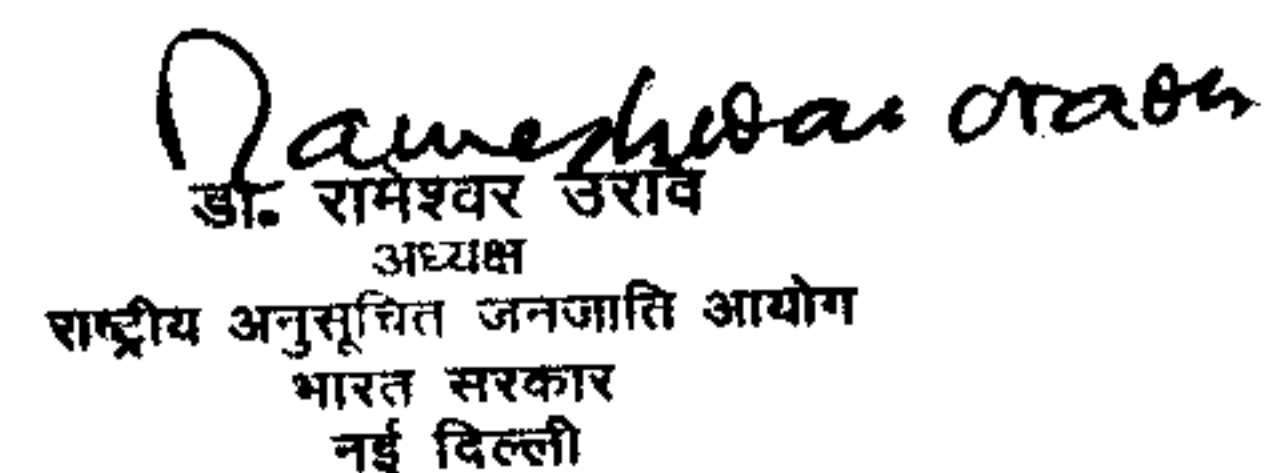 Rameshwar Oraon
डा. रामेश्वर उराव
अध्यक्ष
राष्ट्रीय अनुसूचित जनजाति आयोग
भारत सरकार
नई दिल्ली